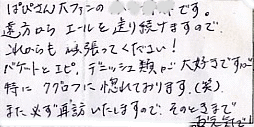 ぱぴさん大ファンの です。
遠方から エールを送り続けますので
これからも 頑張ってください！
バゲットと エピ、デニッシュ類が 大好きですが
特に クグロフに 惚れております。(笑)
また必ず再訪いたしますので、そのときまで
お元気で！